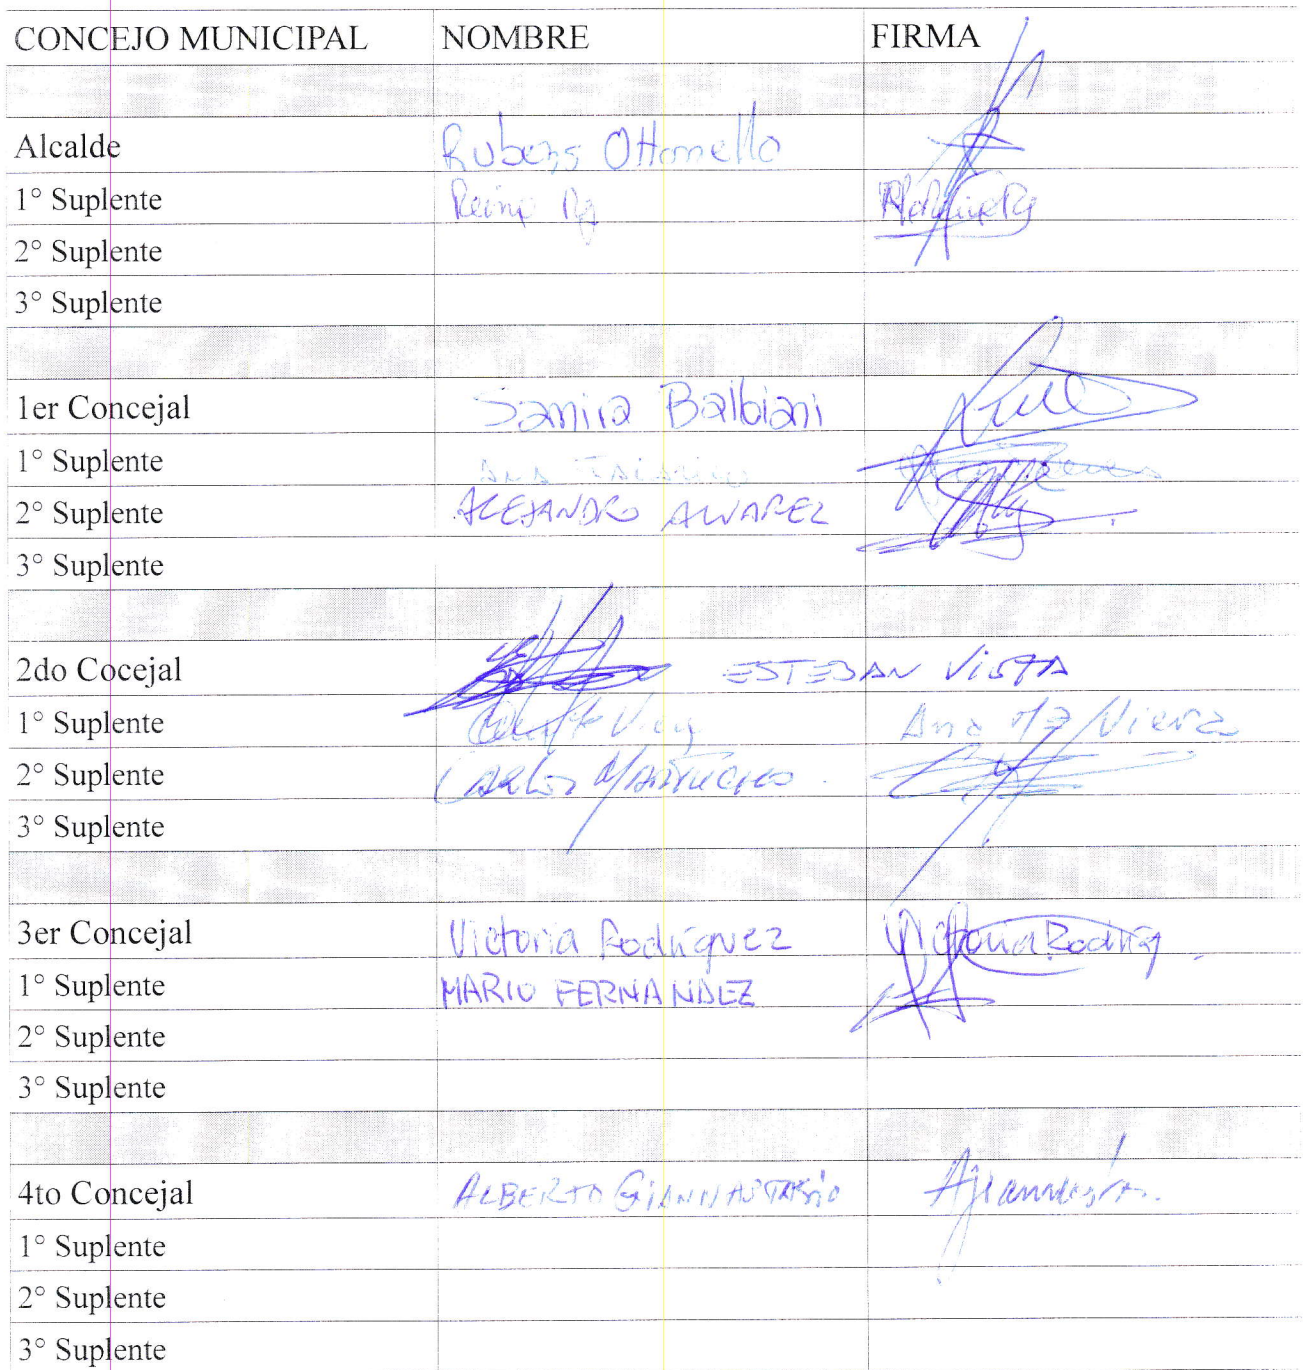 CONCEJO MUNICIPAL NOMBRE FIRMA
Alcalde Rubens Ottonello
1° Suplente Reina
2° Suplente
3° Suplente
1er Concejal Samira Balbiani
1° Suplente Ana
2° Suplente ALEJANDRO ALVAREZ
3° Suplente
2do Cocejal ESTEBAN VIOTA
1° Suplente Ana Mª Vieira
2° Suplente Carlos
3° Suplente
3er Concejal Victoria Rodríguez Victoria Rodríg
1° Suplente MARIO FERNANDEZ
2° Suplente
3° Suplente
4to Concejal ALBERTO GIANNASTASIO
1° Suplente
2° Suplente
3° Suplente